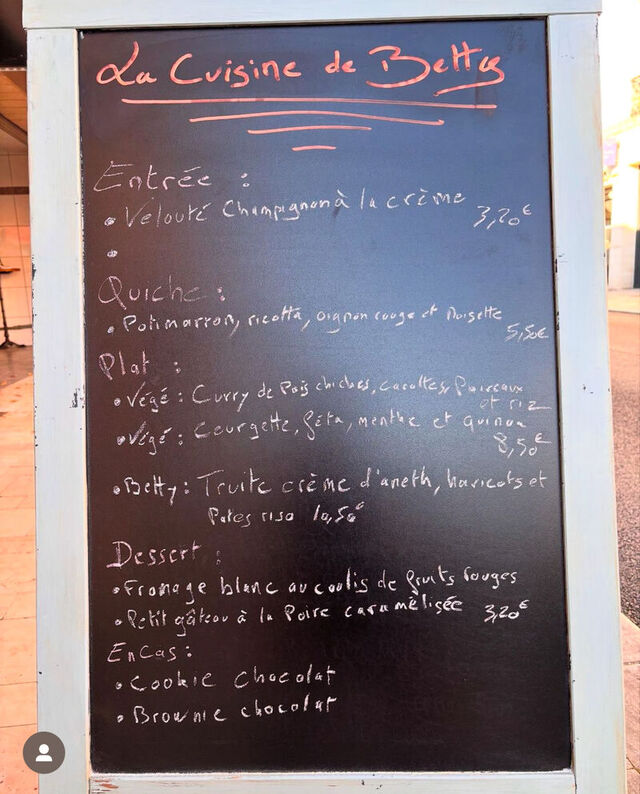 La Cuisine de Betty
Entrée :
• Velouté Champignon à la crème 3,20€
•
Quiche :
• Potimarron, ricotta, oignon rouge et Noisette
5,50€
Plat :
• Végé : Curry de Pois chiches, carottes, Poireaux
et riz
• Végé : Courgette, féta, menthe et quinoa
8,50€
• Betty : Truite crème d'aneth, haricots et
Pates riso 10,50€
Dessert :
• Fromage blanc au coulis de fruits rouges
• Petit gâteau à la Poire caramélisée 3,20€
EnCas :
• Cookie Chocolat
• Brownie chocolat